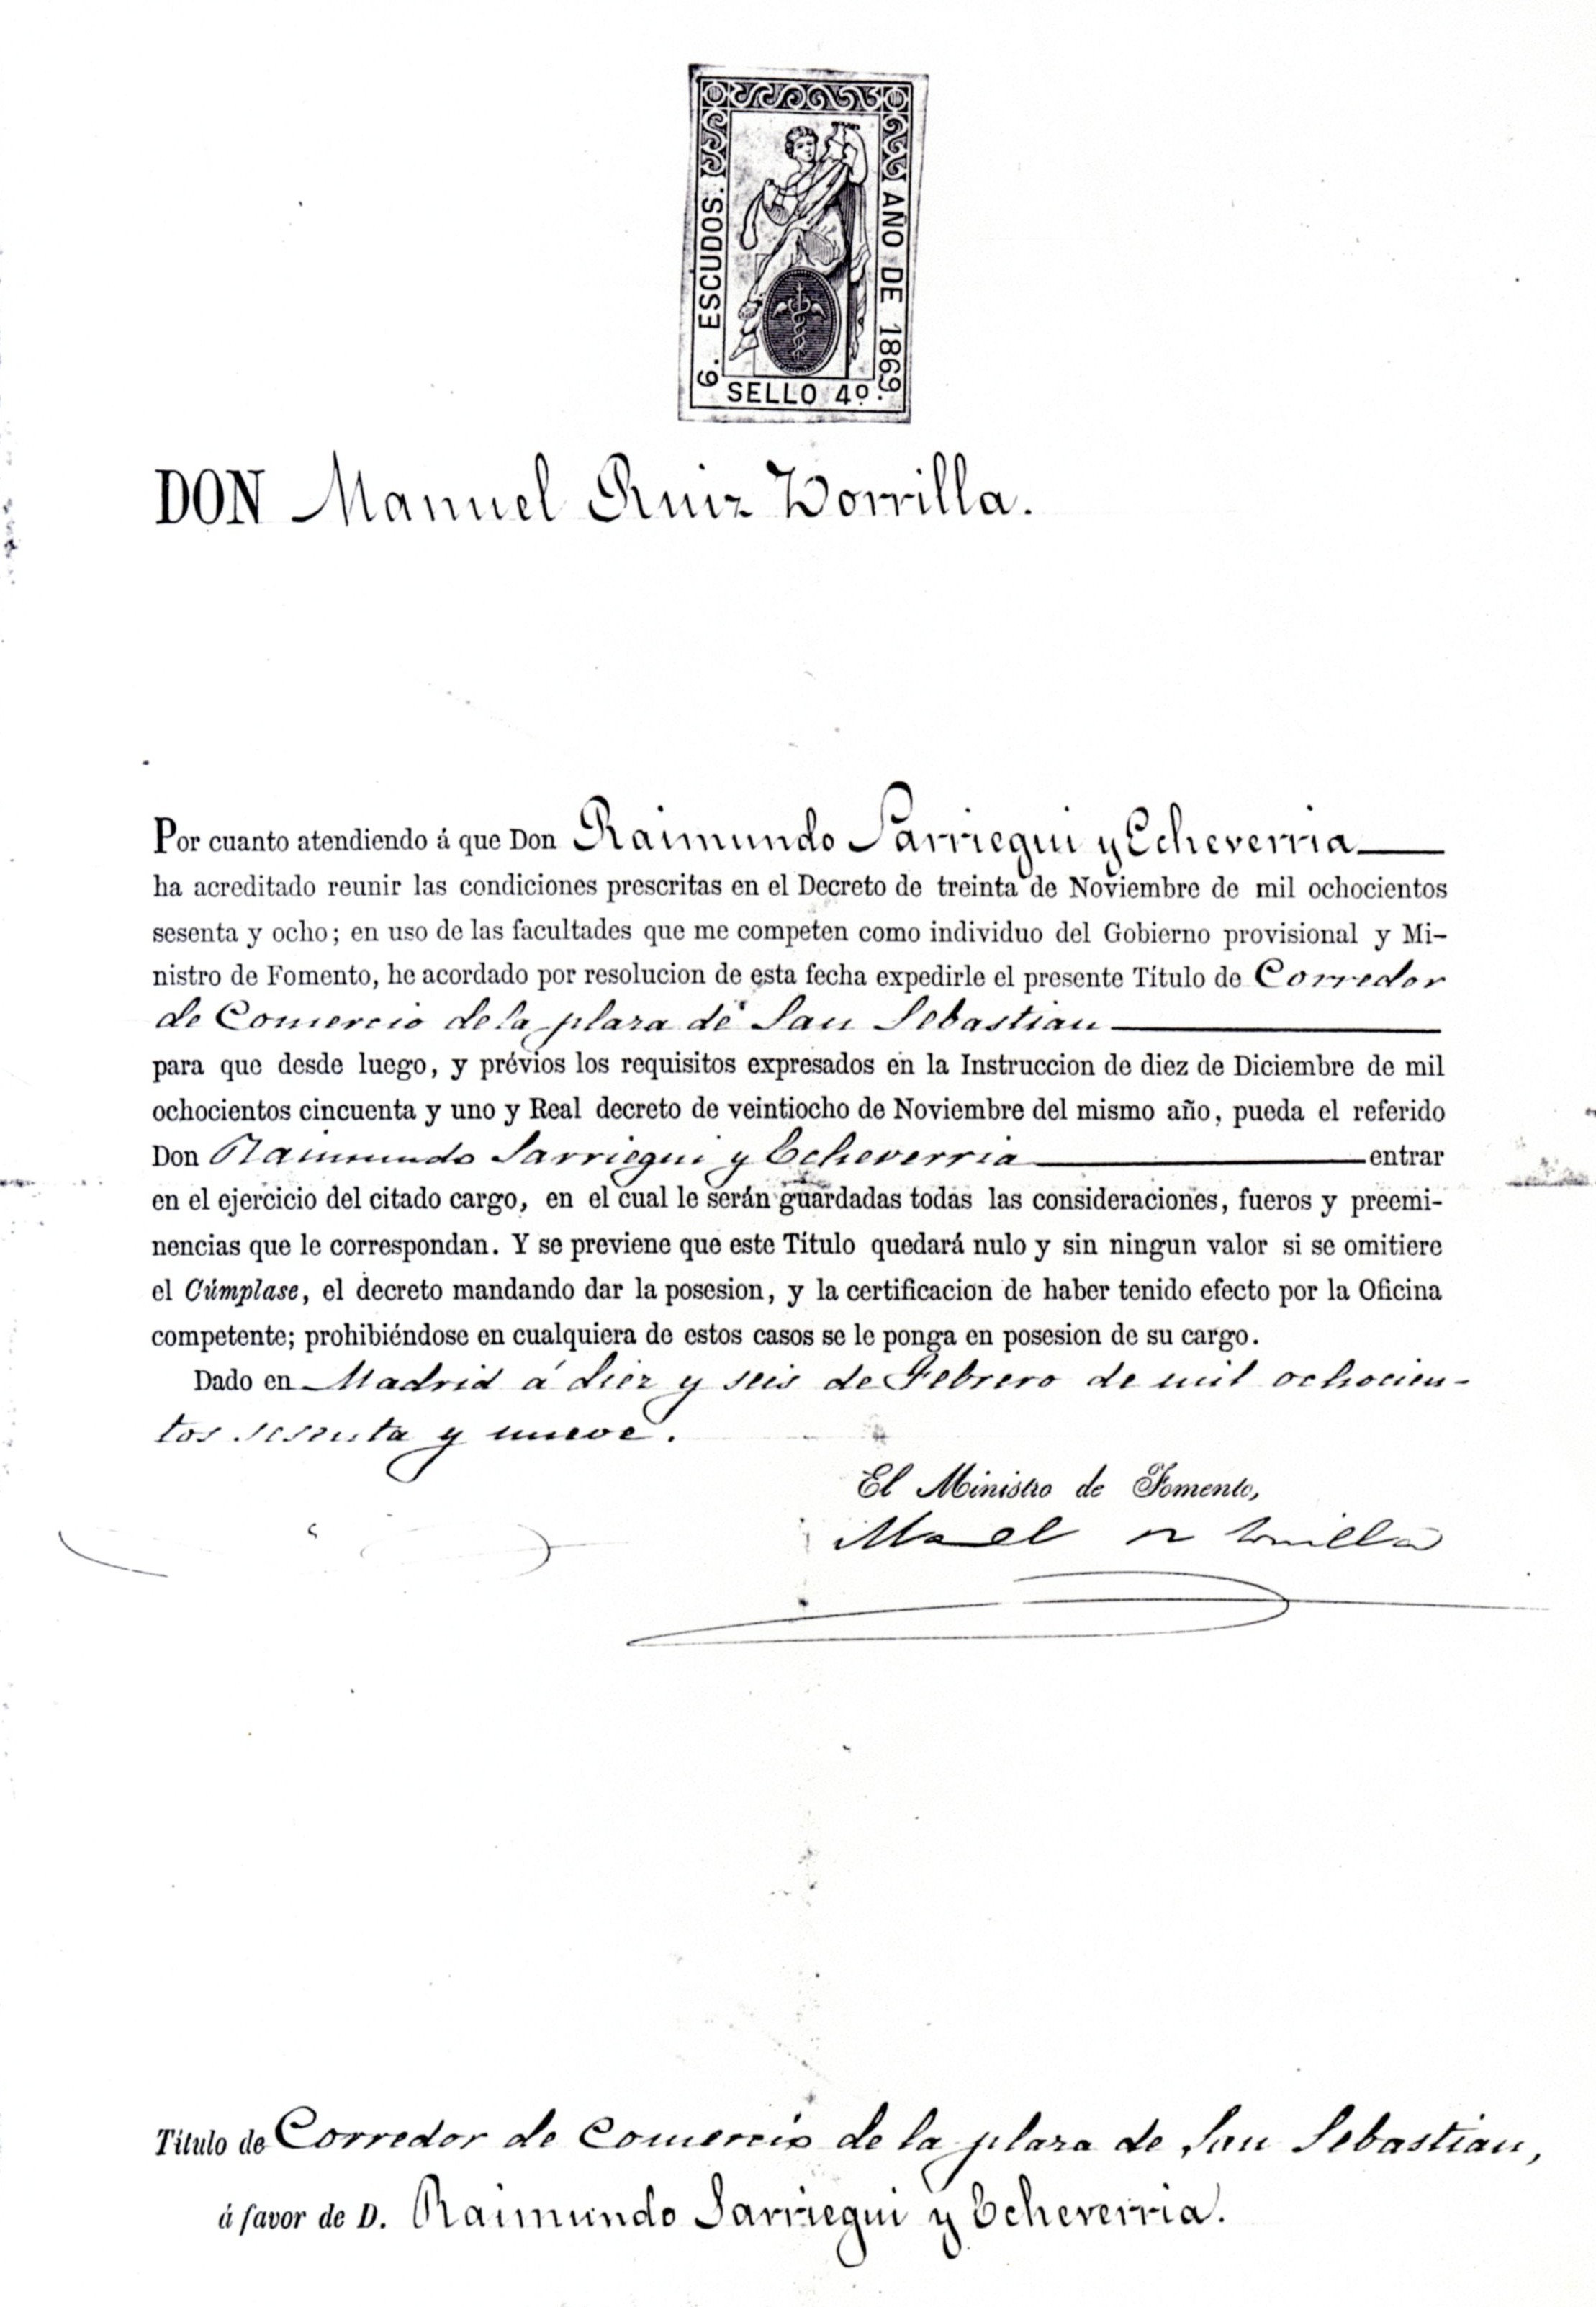 6. ESCUDOS.
AÑO DE 1869.
SELLO 4º
DON Manuel Ruiz Zorrilla.
Por cuanto atendiendo á que Don Raimundo Sarriegui y Echeverria
ha acreditado reunir las condiciones prescritas en el Decreto de treinta de Noviembre de mil ochocientos
sesenta y ocho; en uso de las facultades que me competen como individuo del Gobierno provisional y Mi-
nistro de Fomento, he acordado por resolucion de esta fecha expedirle el presente Título de Corredor
de Comercio de la plaza de San Sebastian
para que desde luego, y prévios los requisitos expresados en la Instruccion de diez de Diciembre de mil
ochocientos cincuenta y uno y Real decreto de veintiocho de Noviembre del mismo año, pueda el referido
Don Raimundo Sarriegui y Echeverria entrar
en el ejercicio del citado cargo, en el cual le serán guardadas todas las consideraciones, fueros y preemi-
nencias que le correspondan. Y se previene que este Título quedará nulo y sin ningun valor si se omitiere
el Cúmplase, el decreto mandando dar la posesion, y la certificacion de haber tenido efecto por la Oficina
competente; prohibiéndose en cualquiera de estos casos se le ponga en posesion de su cargo.
Dado en Madrid á diez y seis de Febrero de mil ochocien-
tos sesenta y nueve.
El Ministro de Fomento,
Manuel R Zorrilla
Título de Corredor de Comercio de la plaza de San Sebastian,
á favor de D. Raimundo Sarriegui y Echeverria.